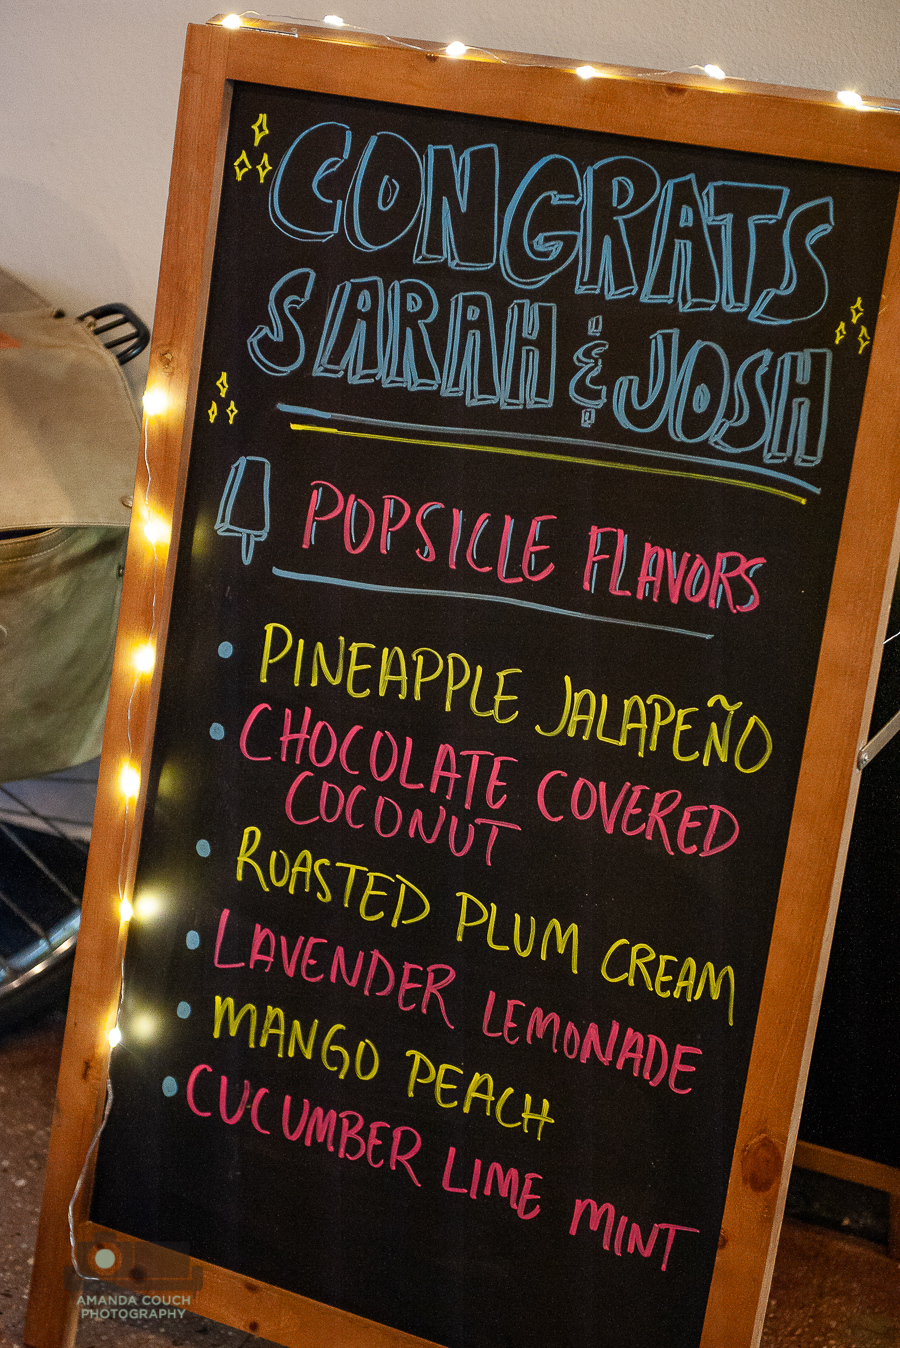 CONGRATS
SARAH & JOSH
POPSICLE FLAVORS
• PINEAPPLE JALAPEÑO
• CHOCOLATE COVERED
COCONUT
• ROASTED PLUM CREAM
• LAVENDER LEMONADE
• MANGO PEACH
• CUCUMBER LIME MINT
AMANDA COUCH
PHOTOGRAPHY